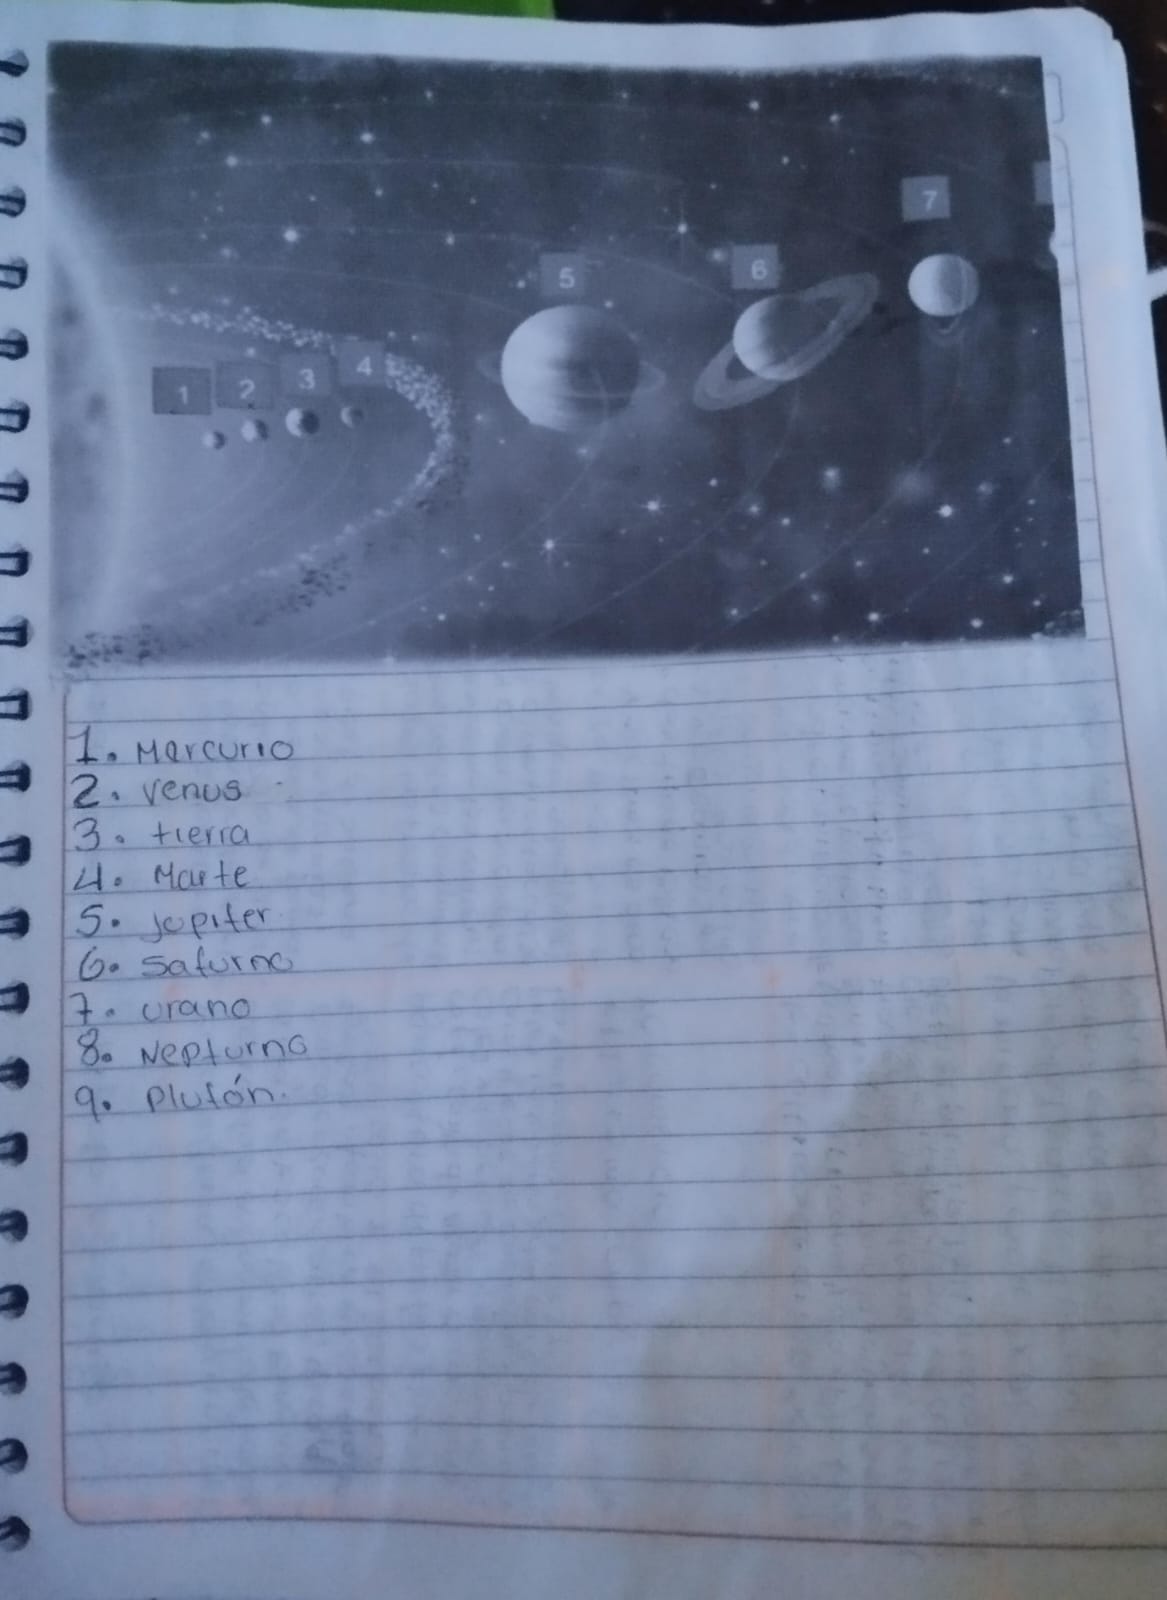 7
6
5
4
3
2
1
1. Mercurio
2. Venus
3. tierra
4. Marte
5. jupiter
6. Saturno
7. urano
8. Nepturno
9. Plutón.